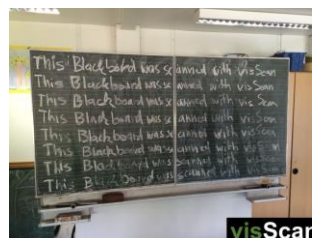 This Blackboard was scanned with visScan
This Blackboard was scanned with visScan
This Blackboard was scanned with visScan
This Blackboard was scanned with visScan
This Blackboard was scanned with visScan
This Blackboard was scanned with visScan
This Blackboard was scanned with visScan
This Blackboard was scanned with visScan
visScan